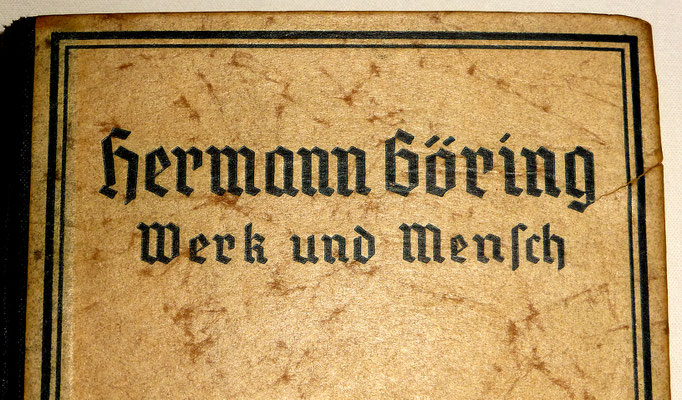 Hermann Göring
Werk und Menſch